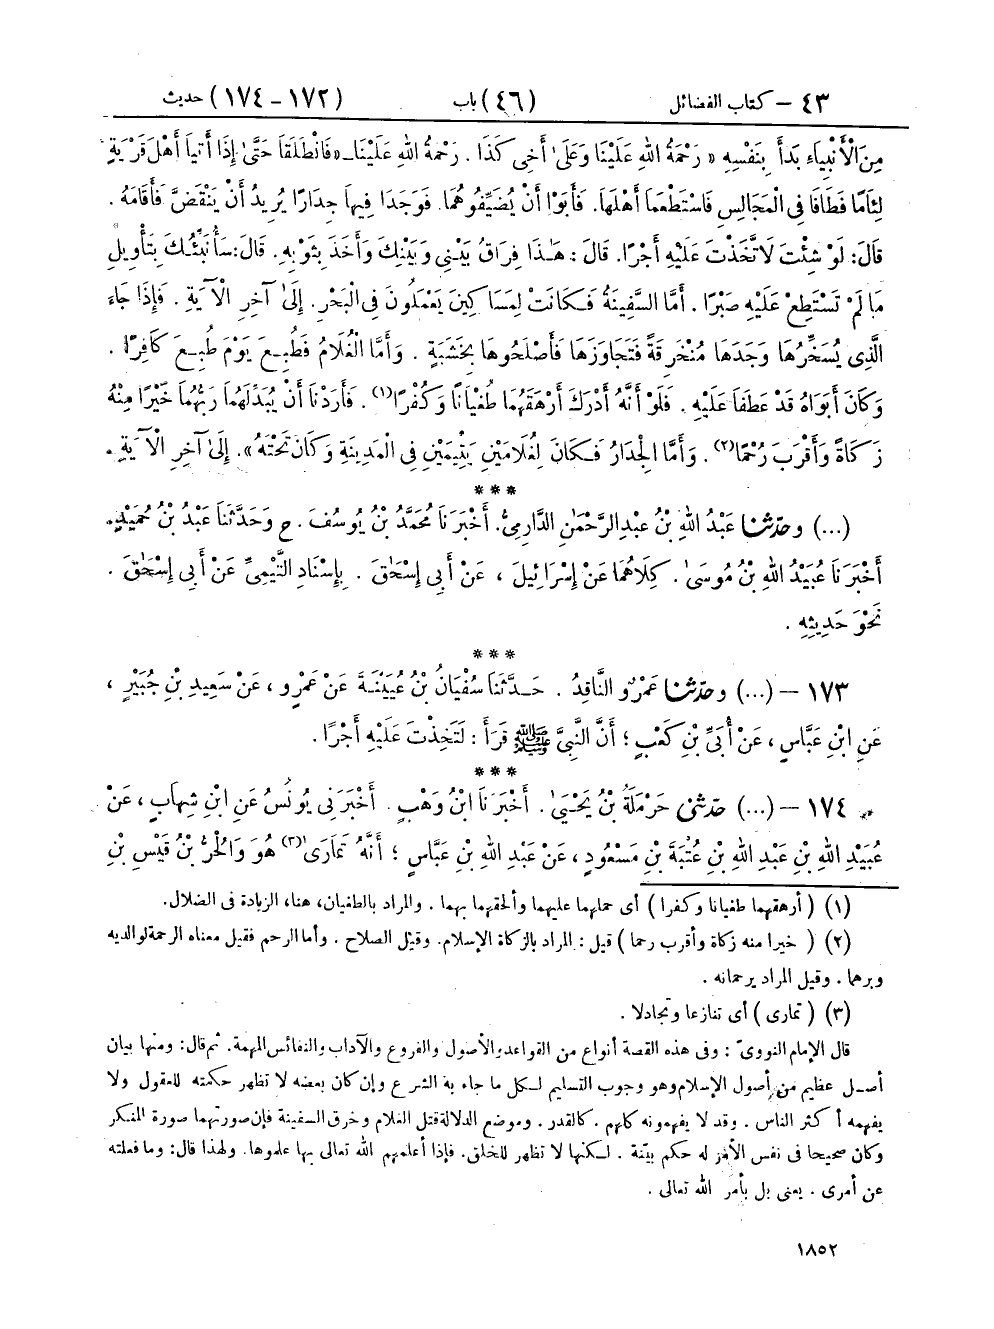 ٤٣ – كتاب الفضائل (٤٦) باب (١٧٢ – ١٧٤) حديث
مِنَ الْأَنْبِيَاءِ بَدَأَ بِنَفْسِهِ « رَحْمَةُ اللهِ عَلَيْنَا وَعَلَىٰ أَخِى كَذَا . رَحْمَةُ اللهِ عَلَيْنَا – « فَانْطَلَقَا حَتَّىٰ إِذَا أَتَيَا أَهْلَ قَرْيَةٍ
لِئَامًا فَطَافَا فِى الْمَجَالِسِ فَاسْتَطْعَمَا أَهْلَهَا. فَأَبَوْا أَنْ يُضَيِّفُوهُمَا. فَوَجَدَا فِيهَا جِدَارًا يُرِيدُ أَنْ يَنْقَضَّ فَأَقَامَهُ .
قَالَ: لَوْ شِئْتَ لَاتَّخَذْتَ عَلَيْهِ أَجْرًا. قَالَ : هَـٰذَا فِرَاقُ بَيْنِى وَبَيْنِكَ وَأَخَذَ بِثَوْبِهِ. قَالَ: سَأُنَبِّئُكَ بِتَأْوِيلِ
مَا لَمْ تَسْتَطِعْ عَلَيْهِ صَبْرًا . أَمَّا السَّفِينَةُ فَكَانَتْ لِمَسَاكِينَ يَعْمَلُونَ فِى الْبَحْرِ. إِلَىٰ آخِرِ الْآيَةِ . فَإِذَا جَاءَ
الَّذِى يُسَخِّرُهَا وَجَدَهَا مُنْخَرِقَةً فَتَجَاوَزَهَا فَأَصْلَحُوهَا بِخَشَبَةٍ . وَأَمَّا الْغُلَامُ فَطُبِعَ يَوْمَ طُبِعَ كَافِرًا .
وَكَانَ أَبَوَاهُ قَدْ عَطَفَا عَلَيْهِ . فَلَوْ أَنَّهُ أَدْرَكَ أَرْهَقَهُمَا طُغْيَانًا وَكُفْرًا(١) . فَأَرَدْنَا أَنْ يُبَدِّلَهُمَا رَبُّهُمَا خَيْرًا مِنْهُ
زَكَاةً وَأَقْرَبَ رُحْمًا(٢) . وَأَمَّا الْجِدَارُ فَكَانَ لِغُلَامَيْنِ يَتِيمَيْنِ فِى الْمَدِينَةِ وَكَانَ تَحْتَهُ ». إِلَىٰ آخِرِ الْآيَةِ .
* * *
(...) وحدّثنا عَبْدُ اللهِ بْنُ عَبْدِ الرَّحْمَـٰنِ الدَّارِمِىُّ. أَخْبَرَنَا مُحَمَّدُ بْنُ يُوسُفَ. ح وَحَدَّثَنَا عَبْدُ بْنُ حُمَيْدٍ.
أَخْبَرَنَا عُبَيْدُ اللهِ بْنُ مُوسَىٰ. كِلَاهُمَا عَنْ إِسْرَائِيلَ ، عَنْ أَبِى إِسْحَاقَ . بِإِسْنَادِ التَّيْمِىِّ عَنْ أَبِى إِسْحَاقَ .
نَحْوَ حَدِيثِهِ .
* * *
١٧٣ – (...) وحدّثنا عَمْرٌو النَّاقِدُ . حَدَّثَنَا سُفْيَانُ بْنُ عُيَيْنَةَ عَنْ عَمْرٍو ، عَنْ سَعِيدِ بْنِ جُبَيْرٍ ،
عَنِ ابْنِ عَبَّاسٍ ، عَنْ أُبَىِّ بْنِ كَعْبٍ ؛ أَنَّ النَّبِىَّ ﷺ قَرَأَ : لَتَخِذْتَ عَلَيْهِ أَجْرًا .
* * *
١٧٤ – (...) حدّثنى حَرْمَلَةُ بْنُ يَحْيَىٰ. أَخْبَرَنَا ابْنُ وَهْبٍ. أَخْبَرَنِى يُونُسُ عَنِ ابْنِ شِهَابٍ ، عَنْ
عُبَيْدِ اللهِ بْنِ عَبْدِ اللهِ بْنِ عُتْبَةَ بْنِ مَسْعُودٍ ، عَنْ عَبْدِ اللهِ بْنِ عَبَّاسٍ ؛ أَنَّهُ تَمَارَىٰ(٣) هُوَ وَالْحُرُّ بْنُ قَيْسِ بْنِ
(١) ( أرهقهما طغيانا وكفرا ) أى حملهما عليهما وألحقهما بهما . والمراد بالطغيان، هنا، الزيادة فى الضلال.
(٢) ( خيرا منه زكاة وأقرب رحما ) قيل : المراد بالزكاة الإسلام. وقيل الصلاح . وأما الرحم فقيل معناه الرحمة لوالديه
وبرهما . وقيل المراد يرحمانه .
(٣) ( تمارى ) أى تنازعا وتجادلا .
قال الإمام النووىّ : وفى هذه القصة أنواع من القواعد والأصول والفروع والآداب والنفائس المهمة. ثم قال: ومنها بيان
أصل عظيم من أصول الإسلام وهو وجوب التسليم لكل ما جاء به الشرع وإن كان بعضه لا تظهر حكمته للعقول ولا
يفهمه أكثر الناس . وقد لا يفهمونه كلهم . كالقدر . وموضع الدلالة قتل الغلام وخرق السفينة فإن صورتهما صورة المنكر
وكان صحيحا فى نفس الأمر له حكم بيّنة . لكنها لا تظهر للخلق. فإذا أعلمهم الله تعالى بها علموها. ولهذا قال: وما فعلته
عن أمرى . يعنى بل بأمر الله تعالى .
١٨٥٢